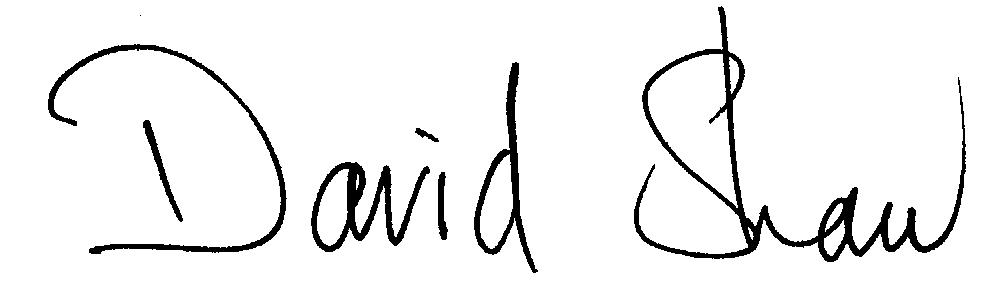 David Shaw